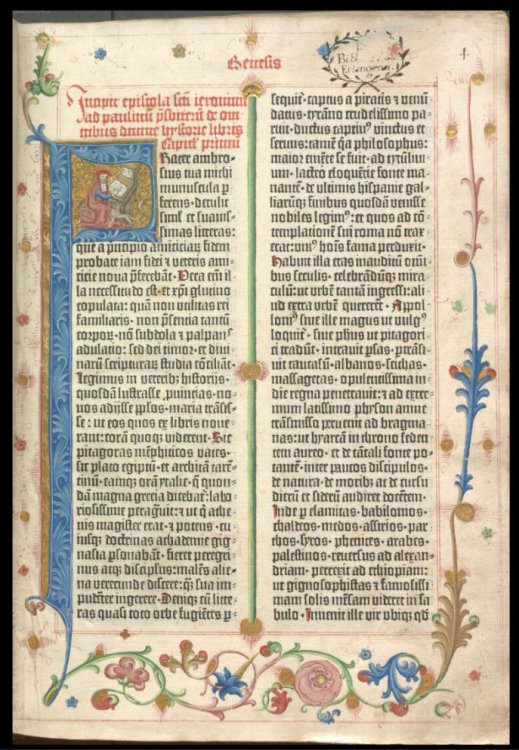 Genesis
Incipit epistola scti ieronimi
ad paulinũ p̃sbiterũ de om̃
nibus diuine hystorie libris
capitl' primũ
Frater ambro-
sius tua michi
munuscula p
ferens · detulit
siml' et suauis-
simas litteras:
que a p̃ncipio amiciciaꝝ fidem
probate iam fidei ⁊ veteris ami-
cicie noua p̃ferebãt · Vera eñi il-
la necessitudo est · et xp̃i glutino
copulata: quã non utilitas rei
familiaris · non p̃sentia tantũ
corpoꝝ · nõ subdola ⁊ palpans
adulatio: sed dei timor · et diui-
naꝝ scripturaꝝ studia cõciliãt ·
Legimus in veteribȝ historijs ·
quosdã lustrasse ꝓuincias · no-
uos adijsse pp̃los · maria trãsis-
se: ut eos quos ex libris noue-
rant: corã quoqȝ viderent · Sic
pitagoras mẽphiticos vates ·
sic plato egiptũ · et architã tarẽ-
tinũ · eamqȝ orã ytalie · que quon-
dã magna grecia dicebat: labo-
riosissime peragiuit: ⁊ ut q̃ athe-
nis magister erat · ⁊ potens · cu-
iusqȝ doctrinas achademie gig-
nasia p̃sonabãt · fieret peregri-
nus atqȝ discipulus: malẽs alie-
na verecunde discere: q̃ sua im-
pudẽter ingerere · Deniqȝ cũ litte-
ras quasi toto orbe fugiẽtes p-
sequit' · captus a piratis ⁊ venũ-
datus · tyrãno crudelissimo pa-
ruit · ductus captiuꝯ vinctus et
seruus: tamẽ q̃a philosophus:
maior emẽte se fuit · ad tytũliui-
um · lacteo eloquẽcie fonte ma-
nantẽ · de ultimis hispanie gal-
liarũqȝ finibus quosdã venisse
nobiles legimꝯ: et quos ad cõ-
templationẽ sui roma nõ trax-
erat: vniꝯ hoĩs fama perduxit ·
Habuit illa etas inauditũ om̃i-
bus seculis · celebrãdũqȝ mira-
culũ: ut vrbẽ tantã ingressi: ali-
ud extra vrbẽ quererẽt · Appol-
loniꝯ siue ille magus ut vulgꝯ
loquit' · siue ph̃us ut pitagori-
ci tradũt · intrauit p̃sas · p̃trãsi-
uit caucasũ · albanos · scithas ·
massagetas · opulentissima in-
die regna penetrauit: ⁊ ad extre-
mum latissimo physon amne
trãsmisso peruenit ad bragma-
nas: ut hyarcã in throno sedẽtem
aureo · et de tãtali fonte po-
tantẽ · inter paucos discipulos ·
de natura · de moribȝ ac de cursu
dierũ et siderũ audiret docẽtem ·
Inde p elamitas · babilonios ·
chaldeos · medos · assirios · par-
thos · syros · phenices · arabes ·
palestinos · reuersus ad alexan-
driam · perrexit ad ethiopiam:
ut gignosophistas ⁊ famosissi-
mam solis mẽsam videret in sa-
bulo · Inuenit ille vir vbiqȝ qd̃